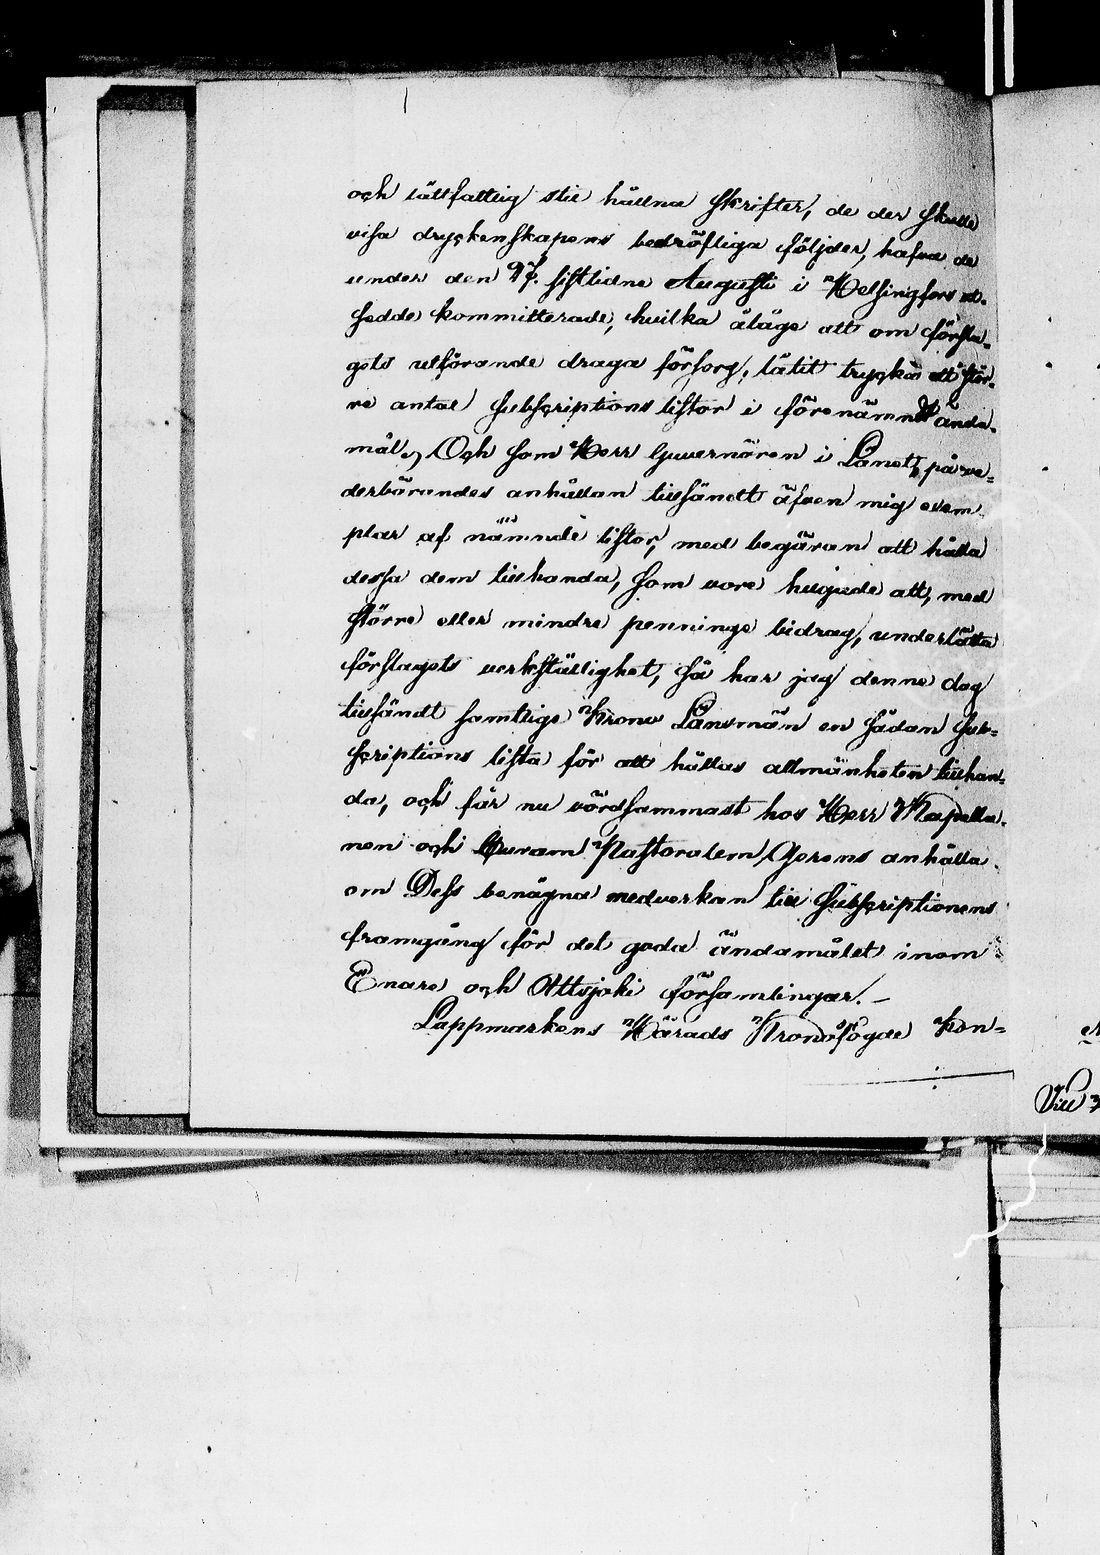 och lättfattlig stil hållna skrifter, de der skulle
visa dryckenskapens bedröfliga följder, hafva de
under den 17. sistlidne Augusti i Helsingfors ut-
sedde kommitterade, hvilka åläge att om försla-
gets utförande draga försorg, låtit trycka ett stör-
re antal subscriptions listor i förenämndt ända-
mål, Och som Herr Guvernören i Länet, på ve-
derbörandes anhållan tillsändt äfven mig exem-
plar af nämnde listor, med begäran att hålla
dessa dem tillhanda, som vore hugade att, med
större eller mindre pennings bidrag, underlätta
förslagets verkställighet, så har jag denne dag
tillsändt samtlige Krono Länsmän en sådan sub-
scriptions lista för att hållas allmänheten tillhan-
da, och får nu vördsammast hos Herr Kapella-
nen och Curam Pastoralem Gerens anhålla
om Dess benägna medverkan till subscriptionens
framgång för det goda ändamålet inom
Enare och Uttsjoki församlingar. –
Lappmarkens Härads Kronofogde Kon-
Vill